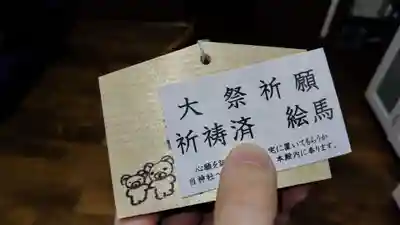 大祭祈願
祈祷済 絵馬
心願を
宅に置いてもらうか
当神社へ
本殿内に奉ります。